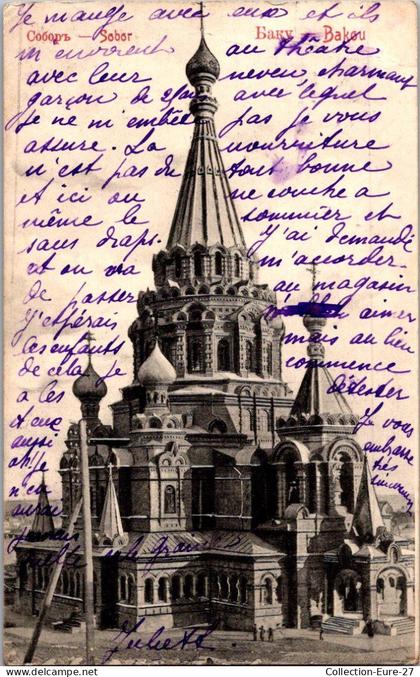 Je mange avec eux et ils
Соборъ — Sobor Баку — Bakou
m'envoient au théâtre
avec leur neveu, charmant
garçon de 2 ans avec lequel
Je ne m'embête pas je vous
assure. La nourriture
n'est pas du tout bonne
et ici on ne couche à
même le sommier et
sans draps. J'ai demandé
et on va m'accorder
de passer au magasin
J'espérais aimer
les enfants mais au lieu
de cela je commence
à les détester
et eux
aussi
ah! je
n'en
aurai
jamais
Je vous
embrasse
très
Juliette
Collection-Eure-27